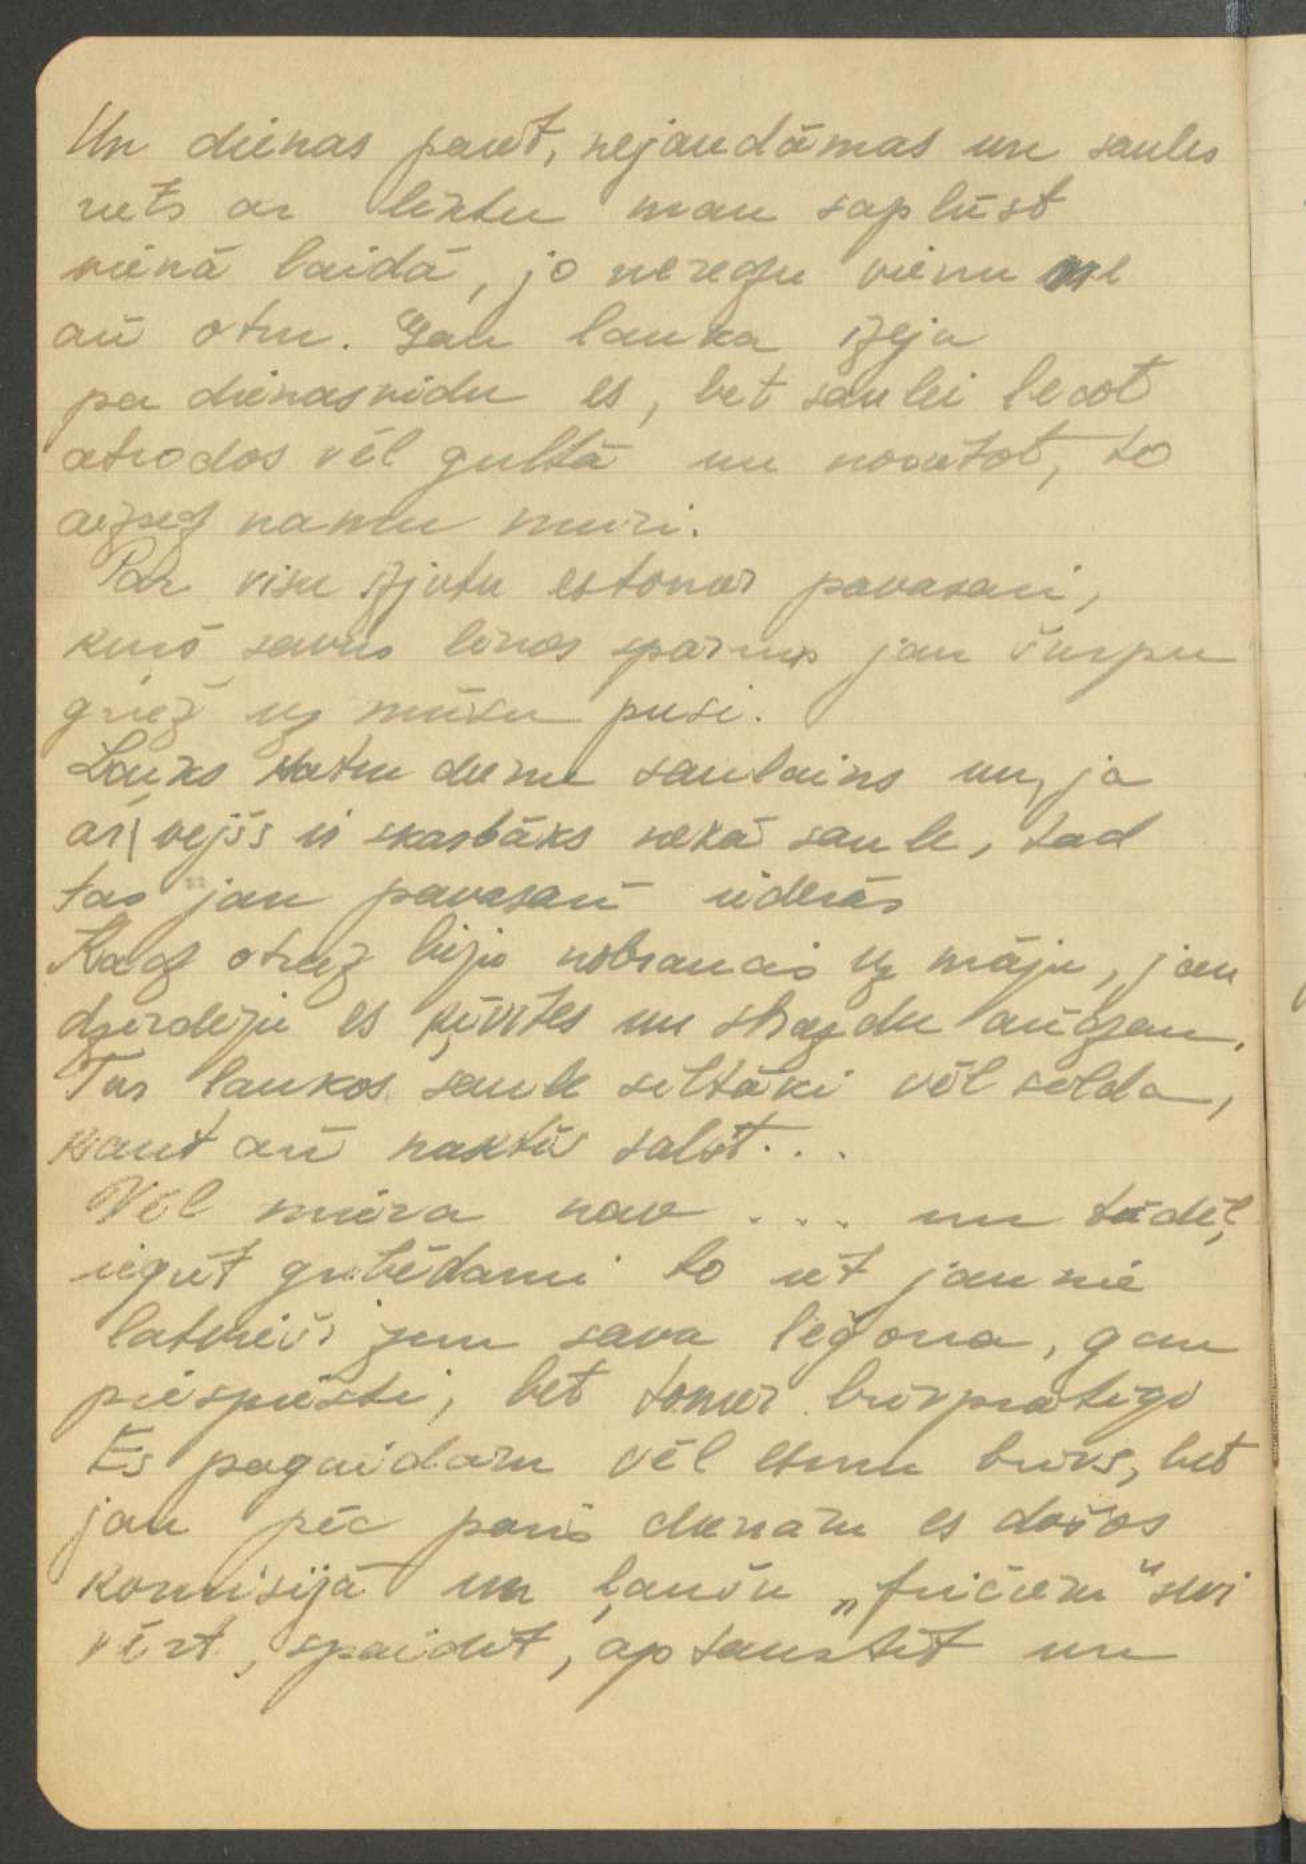 Un dienas paiet, nejaudāmas un saules
riets ar lēktu man saplūst
vienā laidā, jo neredzu vienu ne
arī otru. Gan lauka izeju
pa dienasvidu es, bet saulei lecot
atrodos vēl gultā un norietot, to
aizsedz namu mūri.
Par visu izjūtu es tomēr pavasari,
kurš savus lēnos spārnus jau šurpu
griež uz mūsu pusi.
Lauks katru dienu saulains un, ja
arī vējšs ir skarbāks nekā saule, tad
tas jau pavasarī ūderās
Kad otrreiz biju nobraucis uz māju, jau
dzirdēju es ķīvītes un strazdu augšan.
Tur laukos saule siltāki vēl silda,
kaut arī naktīs salst...
Vēl miera nav ... un tādēļ,
iegūt gribēdami to iet jaunie
latvieši jem sava leģona, gan
piespiesti, bet tomēr brīvprātīgi
Es pagaidām vēl esmu brīvs, bet
jau pēc pāris dienām es došos
komisijā un ļaušu „fričiem" sevi
vērt, spaidīt, aptaustīt un